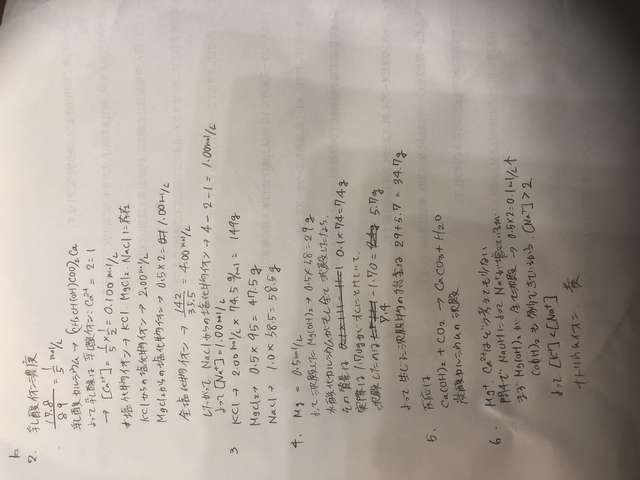 2. 乳酸イオン濃度
17.8/89 = 1/5 mol/L
乳酸カルシウム → (CH3CH(OH)COO)2Ca
よって乳酸イオン:Ca2+ = 2:1
→ [Ca2+] = 1/5 × 1/2 = 0.100 mol/L
水塩化物イオン → KCl MgCl2 NaClに存在
KClからの塩化物イオン → 2.00mol/L
MgCl2からの塩化物イオン → 0.5×2= 1.00mol/L
全塩化物イオン → 142/35.5 = 4.00mol/L
したがって NaClからの塩化物イオン → 4-2-1 = 1.00mol/L
よって [Na+] = 1.00mol/L
3 KCl → 2.00mol/L × 74.5 g/mol = 149g
MgCl2 → 0.5×95 = 47.5g
NaCl → 1.0×58.5 = 58.5g
4. Mg = 0.5mol/L
よって沈殿した Mg(OH)2 → 0.5×58=29g
水酸化カルシウムがもし全て沈殿したなら、
その質量は 0.1×74=7.4g
実際は 1.70gが水にとけていて、
沈殿したのは 7.4-1.70= 5.7g
よって生じた沈殿物の質量は 29+5.7 = 34.7g
5. 反応は
Ca(OH)2 + CO2 → CaCO3 + H2O
炭酸カルシウムの沈殿
6. Mg2+ Ca2+は
NaOHによって Na+が
まず Mg(OH)2が全て沈殿 → 0.5×2=0.1mol/L↑
Ca(OH)2も から [Na+] > 2
よって [K+] < [Na+]
ナトリウムイオン